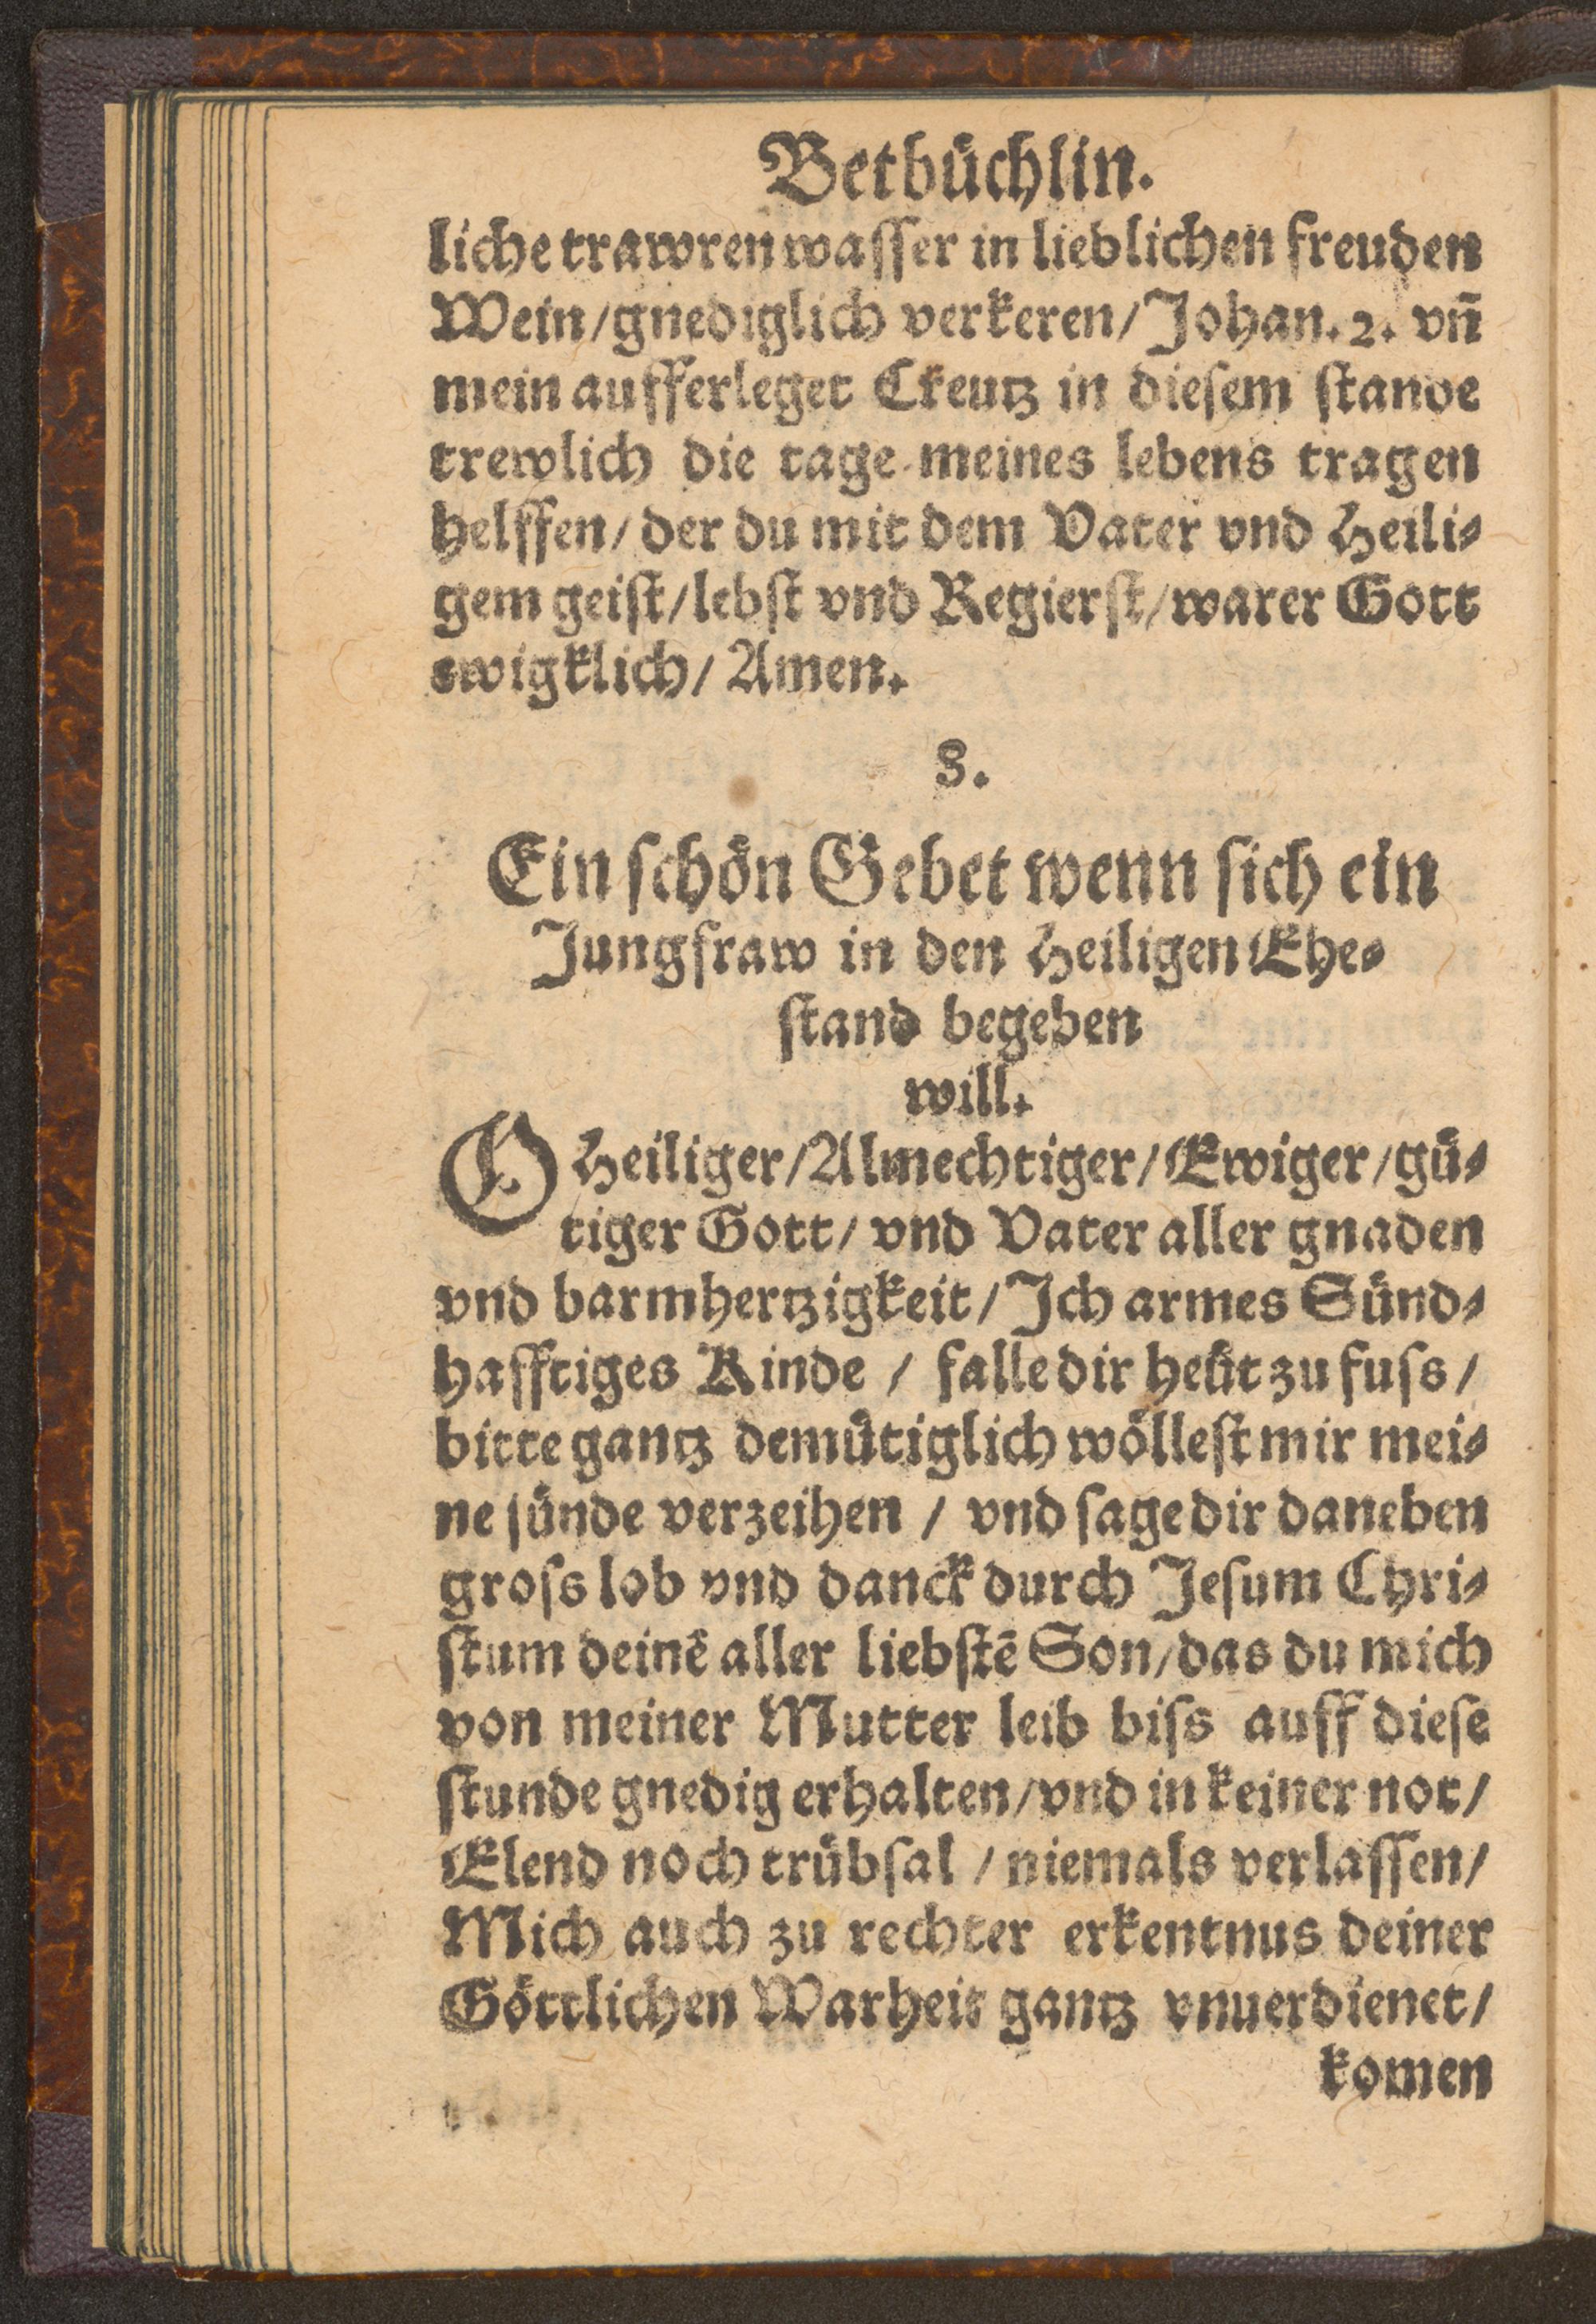 Betbüchlin.
liche trawren wasser in lieblichen freuden
Wein/gnediglich verkeren/Johan. 2. vn̄
mein aufferleget Creutz in diesem stande
trewlich die tage meines lebens tragen
helffen/ der du mit dem Vater vnd Heili⸗
gem geist/lebst vnd Regierst/warer Gott
ewigklich/ Amen.
8.
Ein schön Gebet wenn sich ein
Jungfraw in den Heiligen Ehe⸗
stand begeben
will.
O Heiliger/Almechtiger/Ewiger/gü⸗
tiger Gott/ vnd Vater aller gnaden
vnd barmhertzigkeit/Ich armes Sünd⸗
hafftiges Kinde / falle dir heüt zu fuss/
bitte gantz demütiglich wöllest mir mei⸗
ne sünde verzeihen / vnd sage dir daneben
gross lob vnd danck durch Jesum Chri⸗
stum deinē aller liebstē Son/das du mich
von meiner Mutter leib biss auff diese
stunde gnedig erhalten/vnd in keiner not/
Elend noch trübsal / niemals verlassen/
Mich auch zu rechter erkentnus deiner
Göttlichen Warheit gantz vnuerdienet/
komen